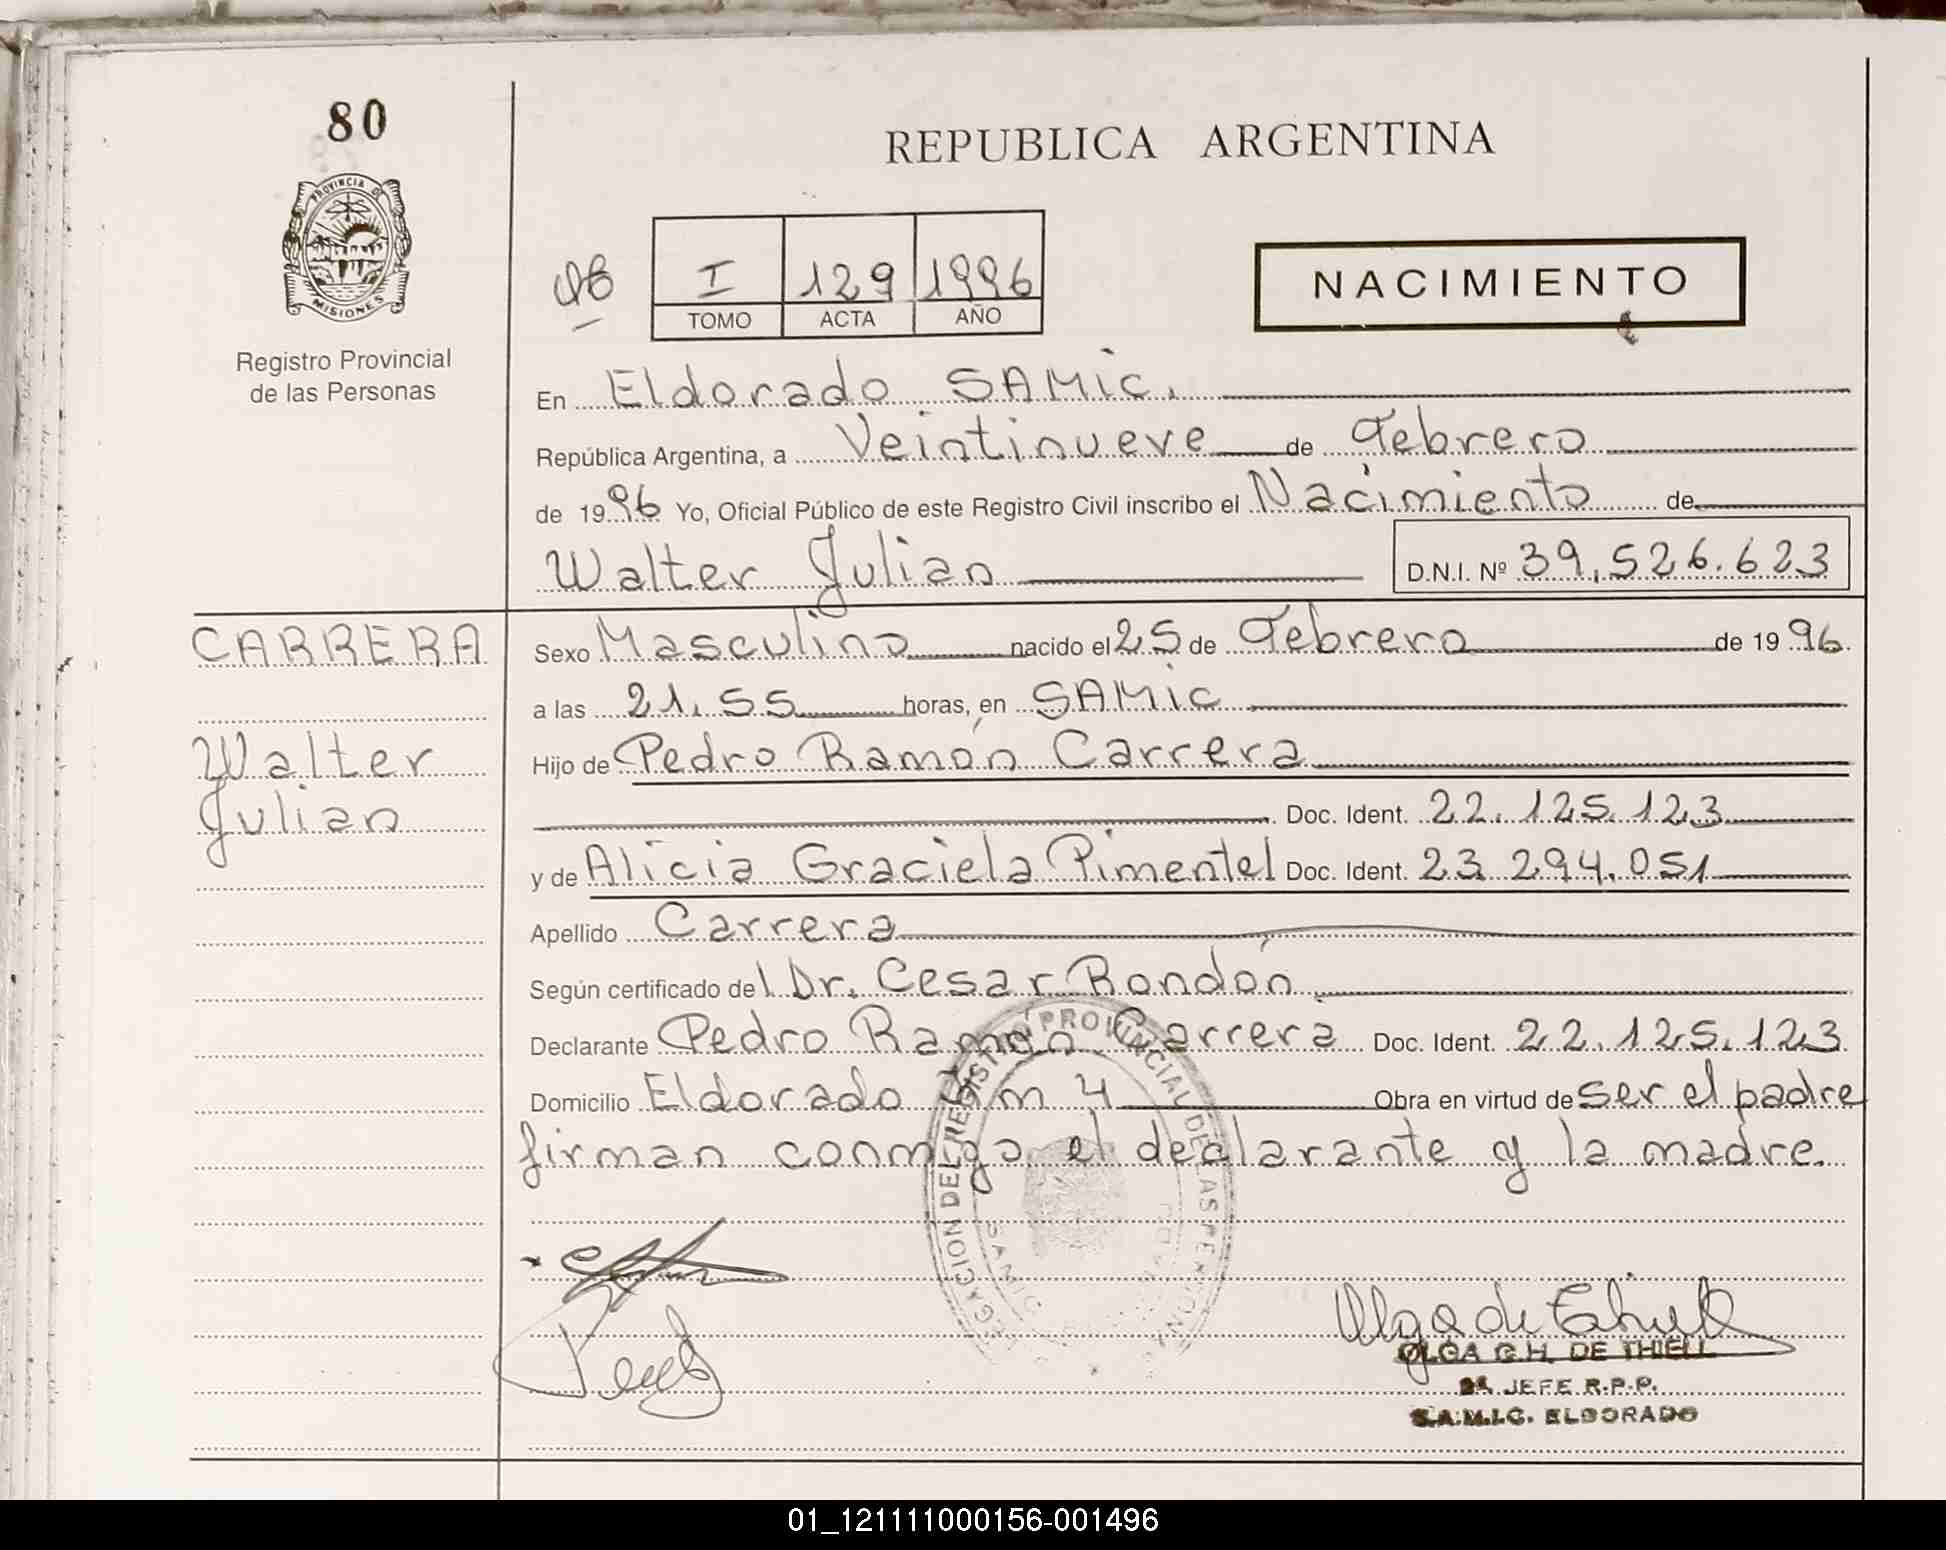 80
REPUBLICA ARGENTINA
PROVINCIA DE
MISIONES
Registro Provincial
de las Personas
I 129 1996
TOMO ACTA AÑO
NACIMIENTO
En Eldorado SAMIC.
República Argentina, a Veintinueve de Febrero
de 1996 Yo, Oficial Público de este Registro Civil inscribo el Nacimiento de
Walter Julian D.N.I. Nº 39.526.623
CARRERA
Walter
Julian
Sexo Masculino nacido el 25 de Febrero de 1996.
a las 21.55 horas, en SAMIC
Hijo de Pedro Ramón Carrera
Doc. Ident. 22.125.123
y de Alicia Graciela Pimentel Doc. Ident. 23.294.051
Apellido Carrera
Según certificado del Dr. Cesar Rondón
Declarante Pedro Ramón Carrera Doc. Ident. 22.125.123
Domicilio Eldorado Km 4 Obra en virtud de ser el padre
firman conmigo el declarante y la madre.
DELEGACION DEL REGISTRO PROVINCIAL DE LAS PERSONAS
SAMIC
Olga de Thiell
OLGA G.H. DE THIELL
JEFE R.P.P.
S.A.M.I.C. ELDORADO
01_121111000156-001496